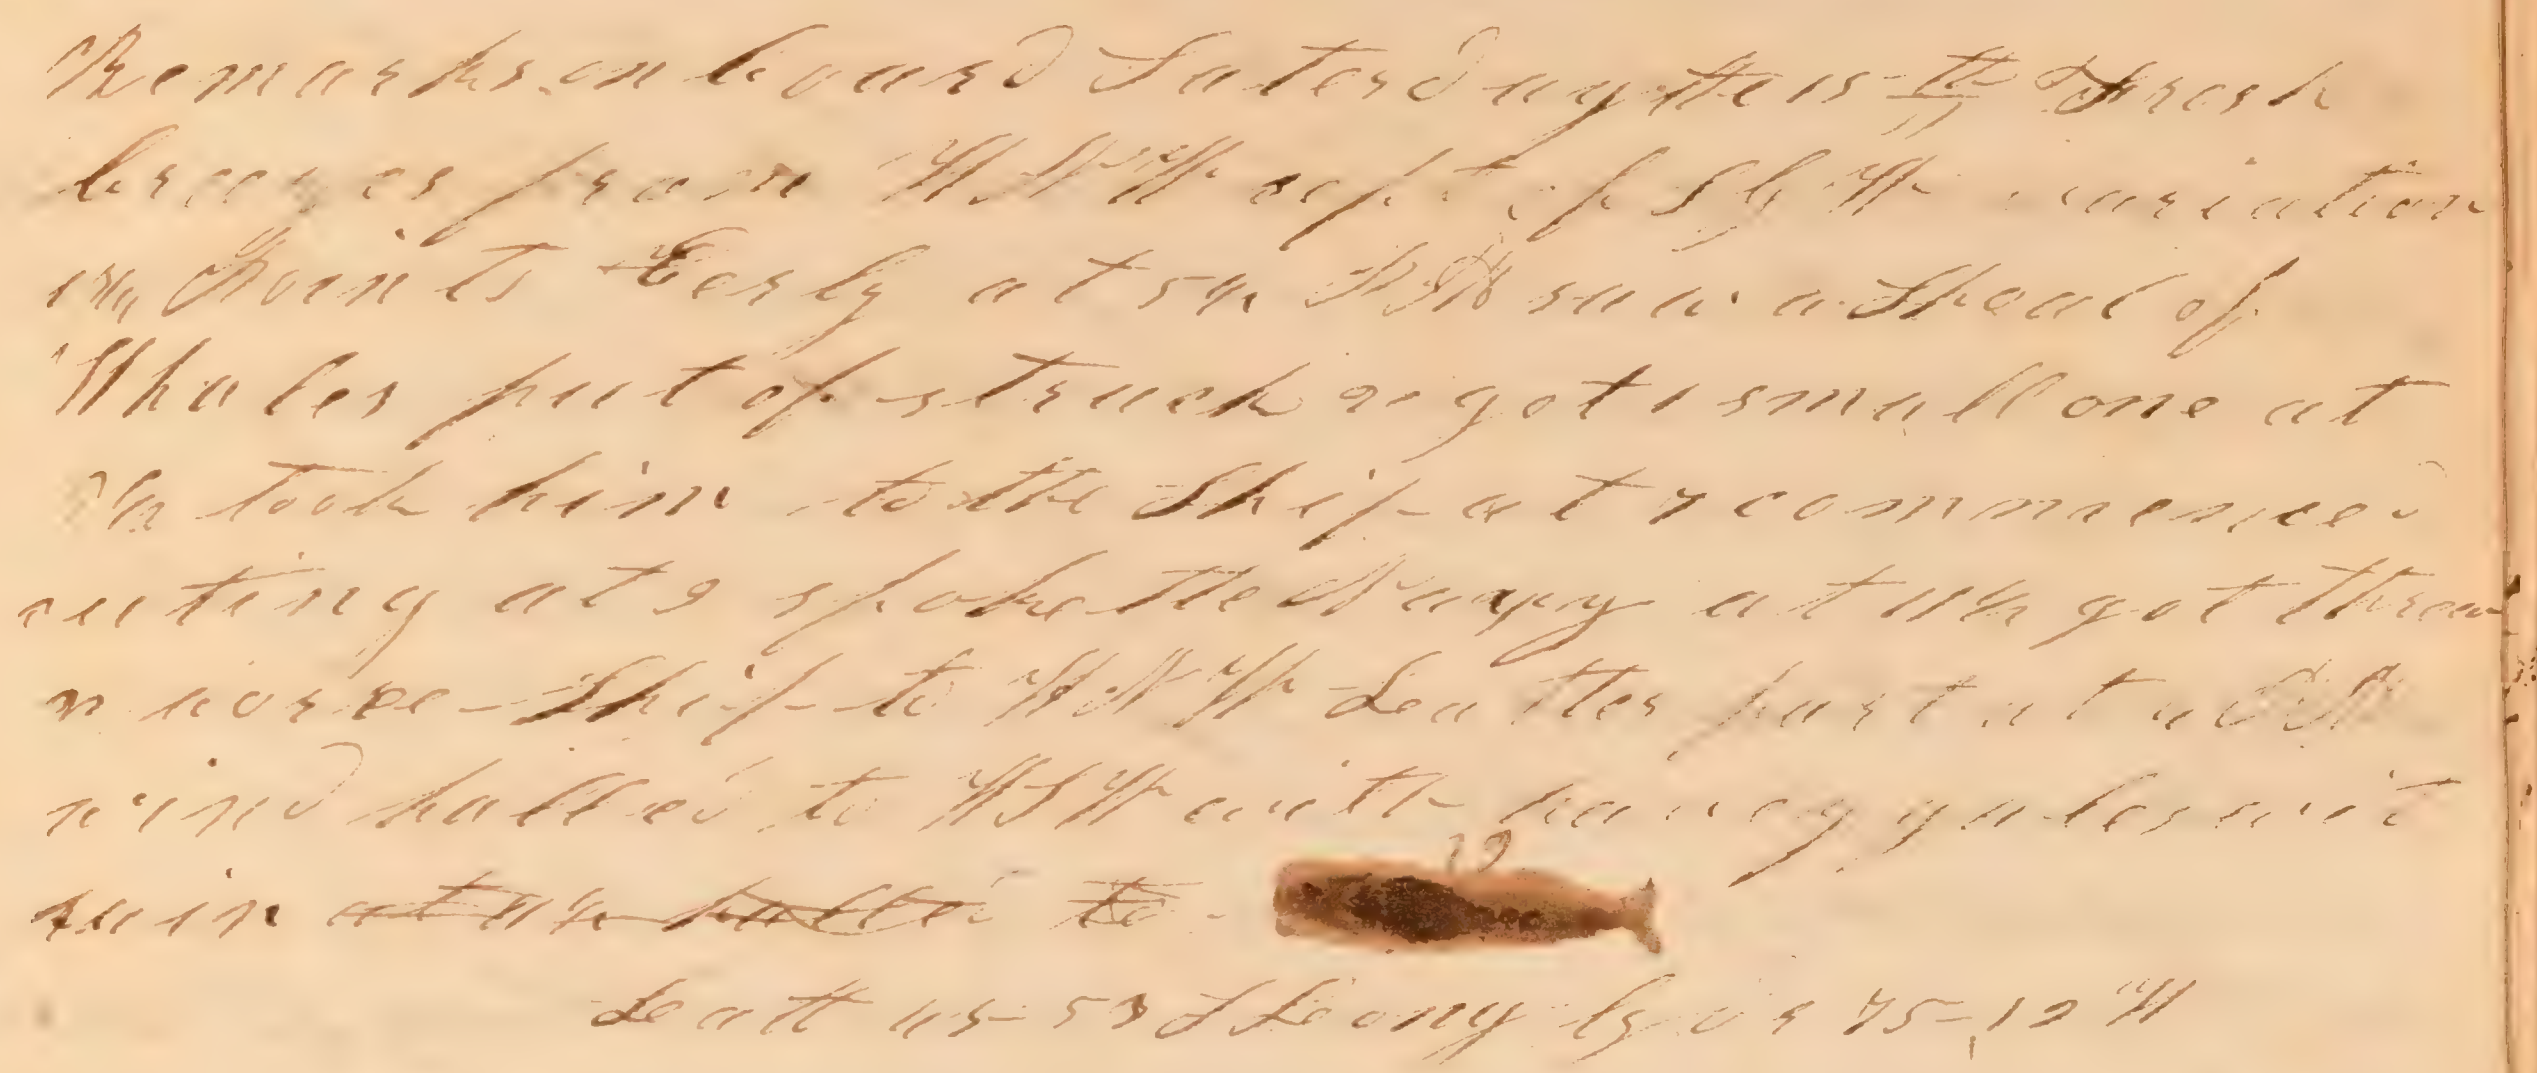 Remarks on board Saterday the 15th Fresh
breezes from WNW cept of S by W variation
1 3/4 Points Easly at 5 1/2 AM saw a Shoal of
Whales put of struck & got 1 small one at
1/2 took him to the Ship at 7 commenced
cuting at 9 spoke the at 11 1/2 got threw
n worce Ship to WNW Leatter part at
wind halled to WSW with heavey gales wit
rain at 11 1/2 halled to
19
Leatt 45-53 S Leong by 75-12 W